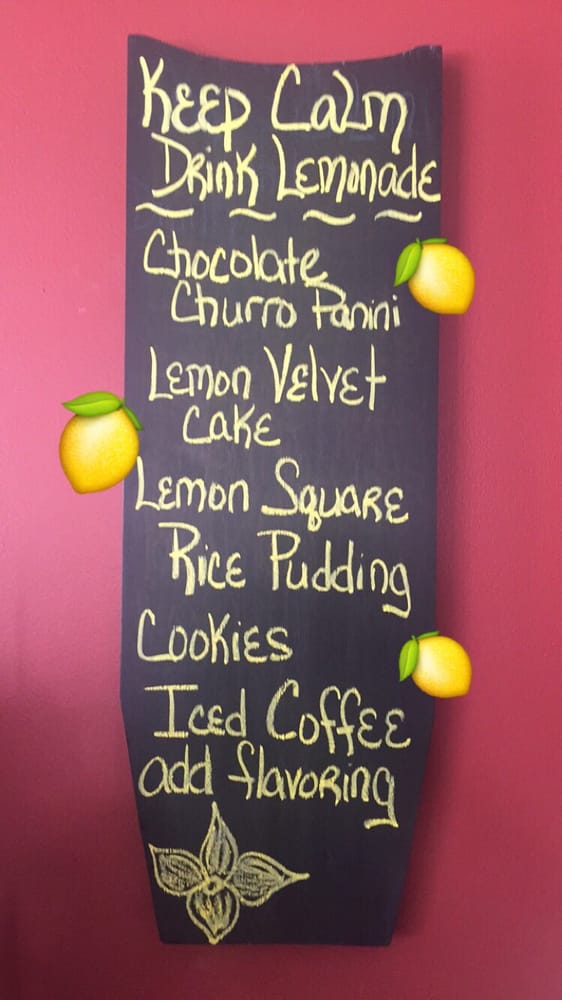 Keep Calm
Drink Lemonade
Chocolate
Churro Panini
Lemon Velvet
Cake
Lemon Square
Rice Pudding
Cookies
Iced Coffee
add flavoring